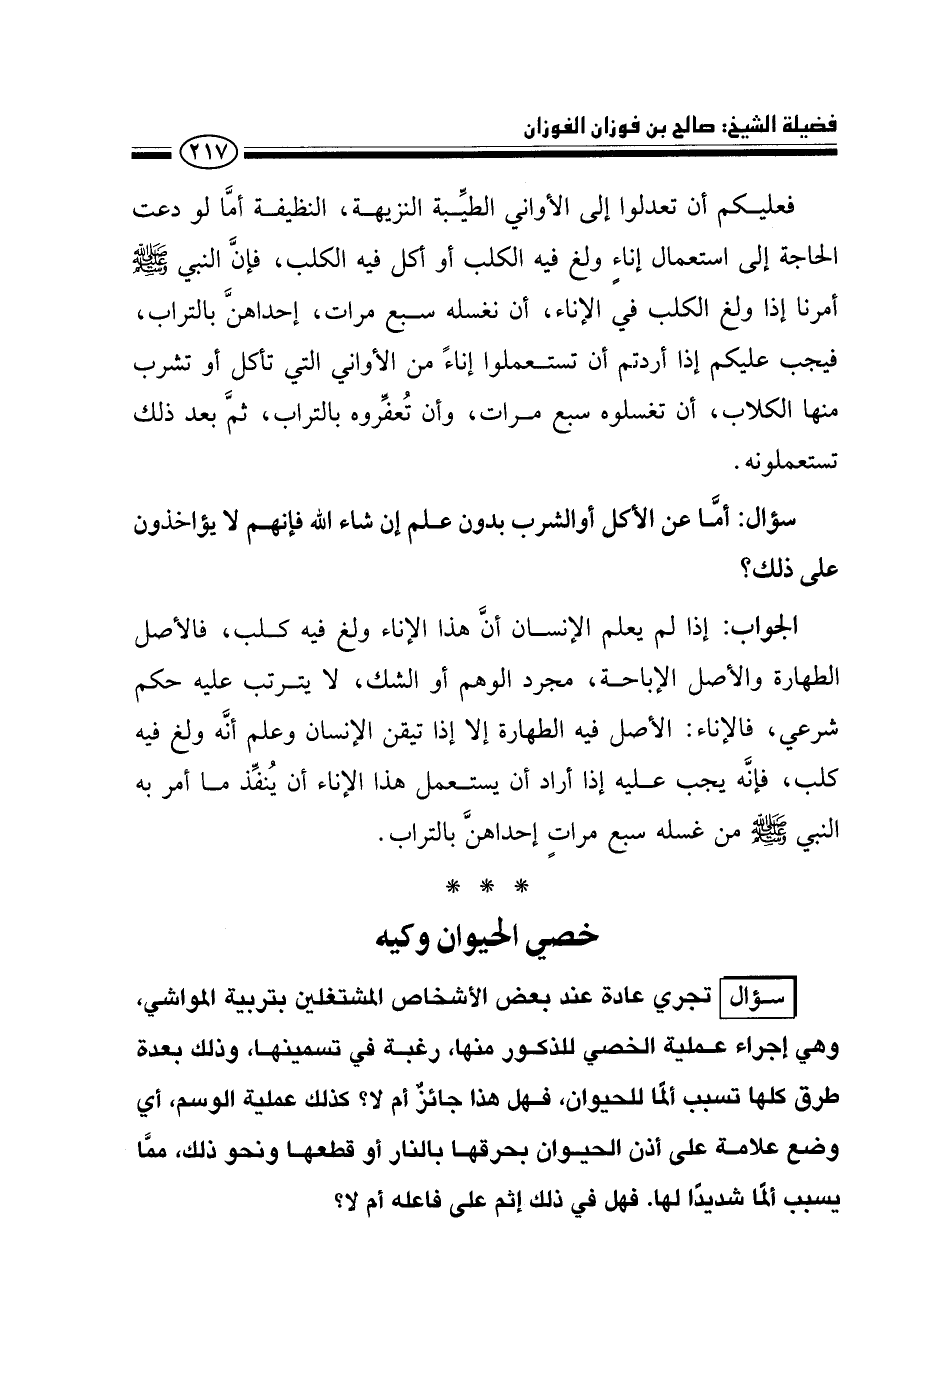 فضيلة الشيخ: صالح بن فوزان الفوزان
٢١٧
فعليكم أن تعدلوا إلى الأواني الطيِّبة النزيهة، النظيفة أمَّا لو دعت
الحاجة إلى استعمال إناءٍ ولغ فيه الكلب أو أكل فيه الكلب، فإنَّ النبي ﷺ
أمرنا إذا ولغ الكلب في الإناء، أن نغسله سبع مرات، إحداهنَّ بالتراب،
فيجب عليكم إذا أردتم أن تستعملوا إناءً من الأواني التي تأكل أو تشرب
منها الكلاب، أن تغسلوه سبع مرات، وأن تُعفِّروه بالتراب، ثمَّ بعد ذلك
تستعملونه.
سؤال: أمَّا عن الأكل أوالشرب بدون علم إن شاء الله فإنهم لا يؤاخذون
على ذلك؟
الجواب: إذا لم يعلم الإنسان أنَّ هذا الإناء ولغ فيه كلب، فالأصل
الطهارة والأصل الإباحة، مجرد الوهم أو الشك، لا يترتب عليه حكم
شرعي، فالإناء: الأصل فيه الطهارة إلا إذا تيقن الإنسان وعلم أنَّه ولغ فيه
كلب، فإنَّه يجب عليه إذا أراد أن يستعمل هذا الإناء أن يُنفِّذ ما أمر به
النبي ﷺ من غسله سبع مراتٍ إحداهنَّ بالتراب.
* * *
خصي الحيوان وكيه
سؤال تجري عادة عند بعض الأشخاص المشتغلين بتربية المواشي،
وهي إجراء عملية الخصي للذكور منها، رغبة في تسمينها، وذلك بعدة
طرق كلها تسبب ألمًا للحيوان، فهل هذا جائزٌ أم لا؟ كذلك عملية الوسم، أي
وضع علامة على أذن الحيوان بحرقها بالنار أو قطعها ونحو ذلك، ممَّا
يسبب ألمًا شديدًا لها. فهل في ذلك إثم على فاعله أم لا؟